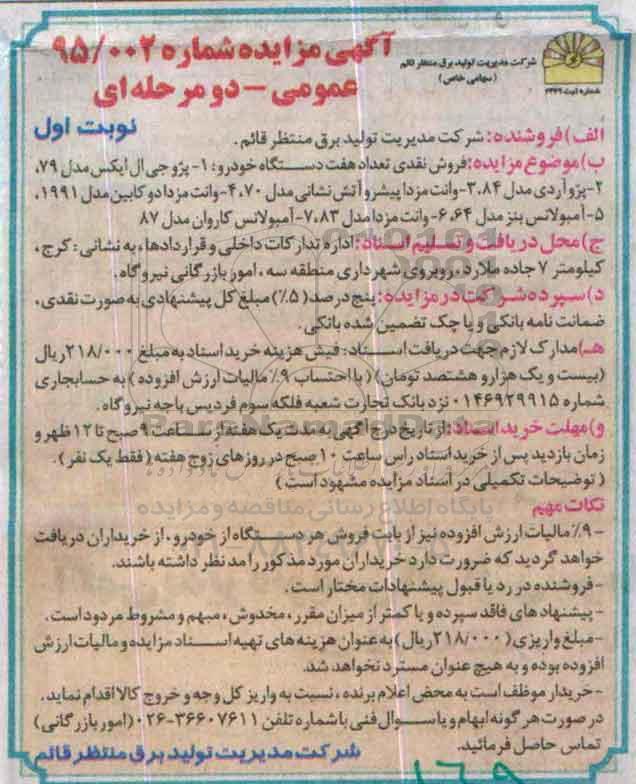 آگهی مزایده شماره ۹۵/۰۰۲
عمومی - دو مرحله ای
شرکت مدیریت تولید برق منتظر قائم
(سهامی خاص)
شماره ثبت ۲۳۲۶
نوبت اول
الف) فروشنده: شرکت مدیریت تولید برق منتظر قائم.
ب) موضوع مزایده: فروش نقدی تعداد هفت دستگاه خودرو: ۱- پژو جی ال ایکس مدل ۷۹،
۲- پژو آردی مدل ۸۴، ۳- وانت مزدا پیشرو آتش نشانی مدل ۷۰، ۴- وانت مزدا دو کابین مدل ۱۹۹۱،
۵- آمبولانس بنز مدل ۶۴، ۶- وانت مزدا مدل ۸۳، ۷- آمبولانس کاروان مدل ۸۷
ج) محل دریافت و تسلیم اسناد: اداره تدارکات داخلی و قراردادها، به نشانی: کرج،
کیلومتر ۷ جاده ملارد، روبروی شهرداری منطقه سه، امور بازرگانی نیروگاه.
د) سپرده شرکت در مزایده: پنج درصد (۵٪) مبلغ کل پیشنهادی به صورت نقدی،
ضمانت نامه بانکی و یا چک تضمین شده بانکی.
هـ) مدارک لازم جهت دریافت اسناد: فیش هزینه خرید اسناد به مبلغ ۲۱۸/۰۰۰ ریال
(بیست و یک هزار و هشتصد تومان) (با احتساب ۹٪ مالیات ارزش افزوده) به حساب جاری
شماره ۰۱۴۶۹۲۹۹۱۵ نزد بانک تجارت شعبه فلکه سوم فردیس باجه نیروگاه.
و) مهلت خرید اسناد: از تاریخ درج آگهی به مدت یک هفته از ساعت ۹ صبح تا ۱۲ ظهر و
زمان بازدید پس از خرید اسناد راس ساعت ۱۰ صبح در روزهای زوج هفته (فقط یک نفر).
(توضیحات تکمیلی در اسناد مزایده مشهود است)
نکات مهم
- ۹٪ مالیات ارزش افزوده نیز از بابت فروش هر دستگاه از خودرو، از خریداران دریافت
خواهد گردید که ضرورت دارد خریداران مورد مذکور را مد نظر داشته باشند.
- فروشنده در رد یا قبول پیشنهادات مختار است.
- پیشنهاد های فاقد سپرده و یا کمتر از میزان مقرر، مخدوش، مبهم و مشروط مردود است.
- مبلغ واریزی (۲۱۸/۰۰۰ ریال) به عنوان هزینه های تهیه اسناد مزایده و مالیات ارزش
افزوده بوده و به هیچ عنوان مسترد نخواهد شد.
- خریدار موظف است به محض اعلام برنده، نسبت به واریز کل وجه و خروج کالا اقدام نماید.
در صورت هر گونه ابهام و یا سوال فنی با شماره تلفن ۳۶۶۰۷۶۱۱-۰۲۶ (امور بازرگانی)
تماس حاصل فرمائید.
شرکت مدیریت تولید برق منتظر قائم
پایگاه اطلاع رسانی مناقصه و مزایده